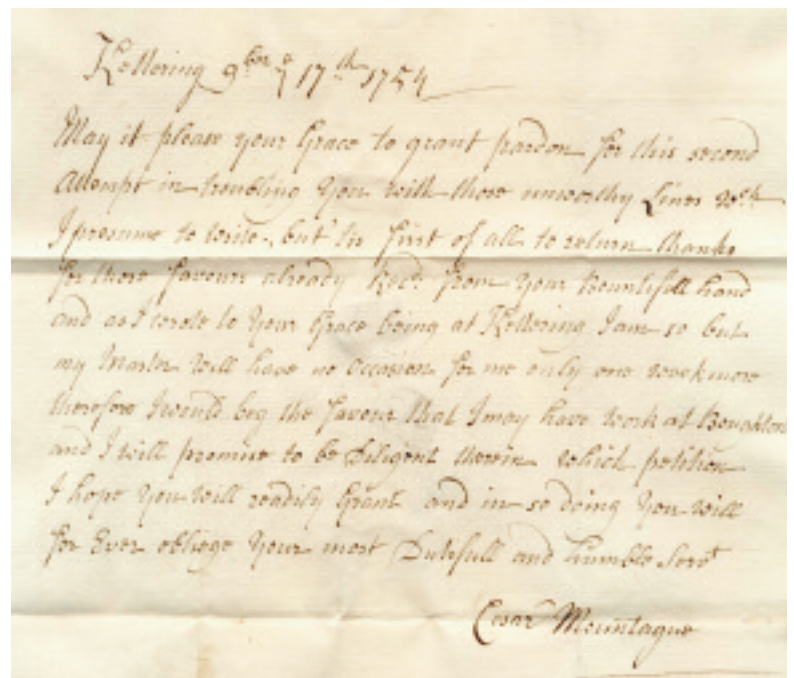 Kettering 9ber ye 17th 1754
May it please your Grace to grant pardon for this second
Attempt in troubling You with these unworthy Lines wch
I presume to write, but tis first of all to return thanks
for those favours already Recd from your Bountifull hand
and as I wrote to Your Grace being at Kettering I am so but
my Master will have no occasion for me only one week more
therefore I would beg the favour that I may have work at Boughton
and I will promise to be Diligent therein which petition
I hope You will readily Grant and in so doing You will
for Ever obliege Your most Dutyfull and humble Servt
Cesar Mountague